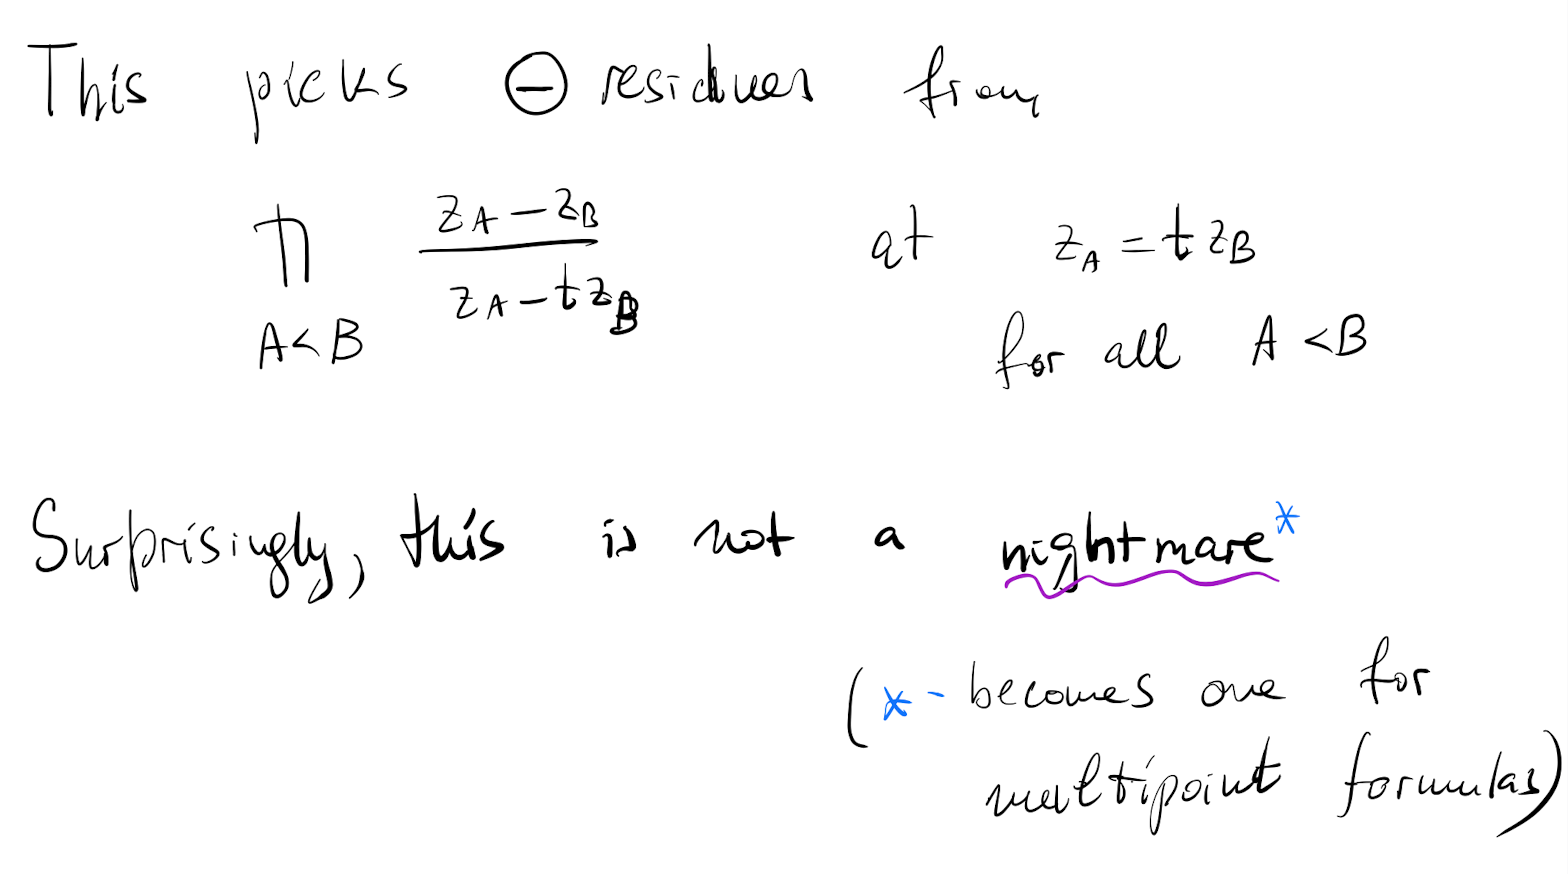 This picks ⊖ residues from
∏ (z_A − z_B) / (z_A − t z_B) at z_A = t z_B
A<B for all A < B
Surprisingly, this is not a nightmare*
(* - becomes one for
multipoint formulas)